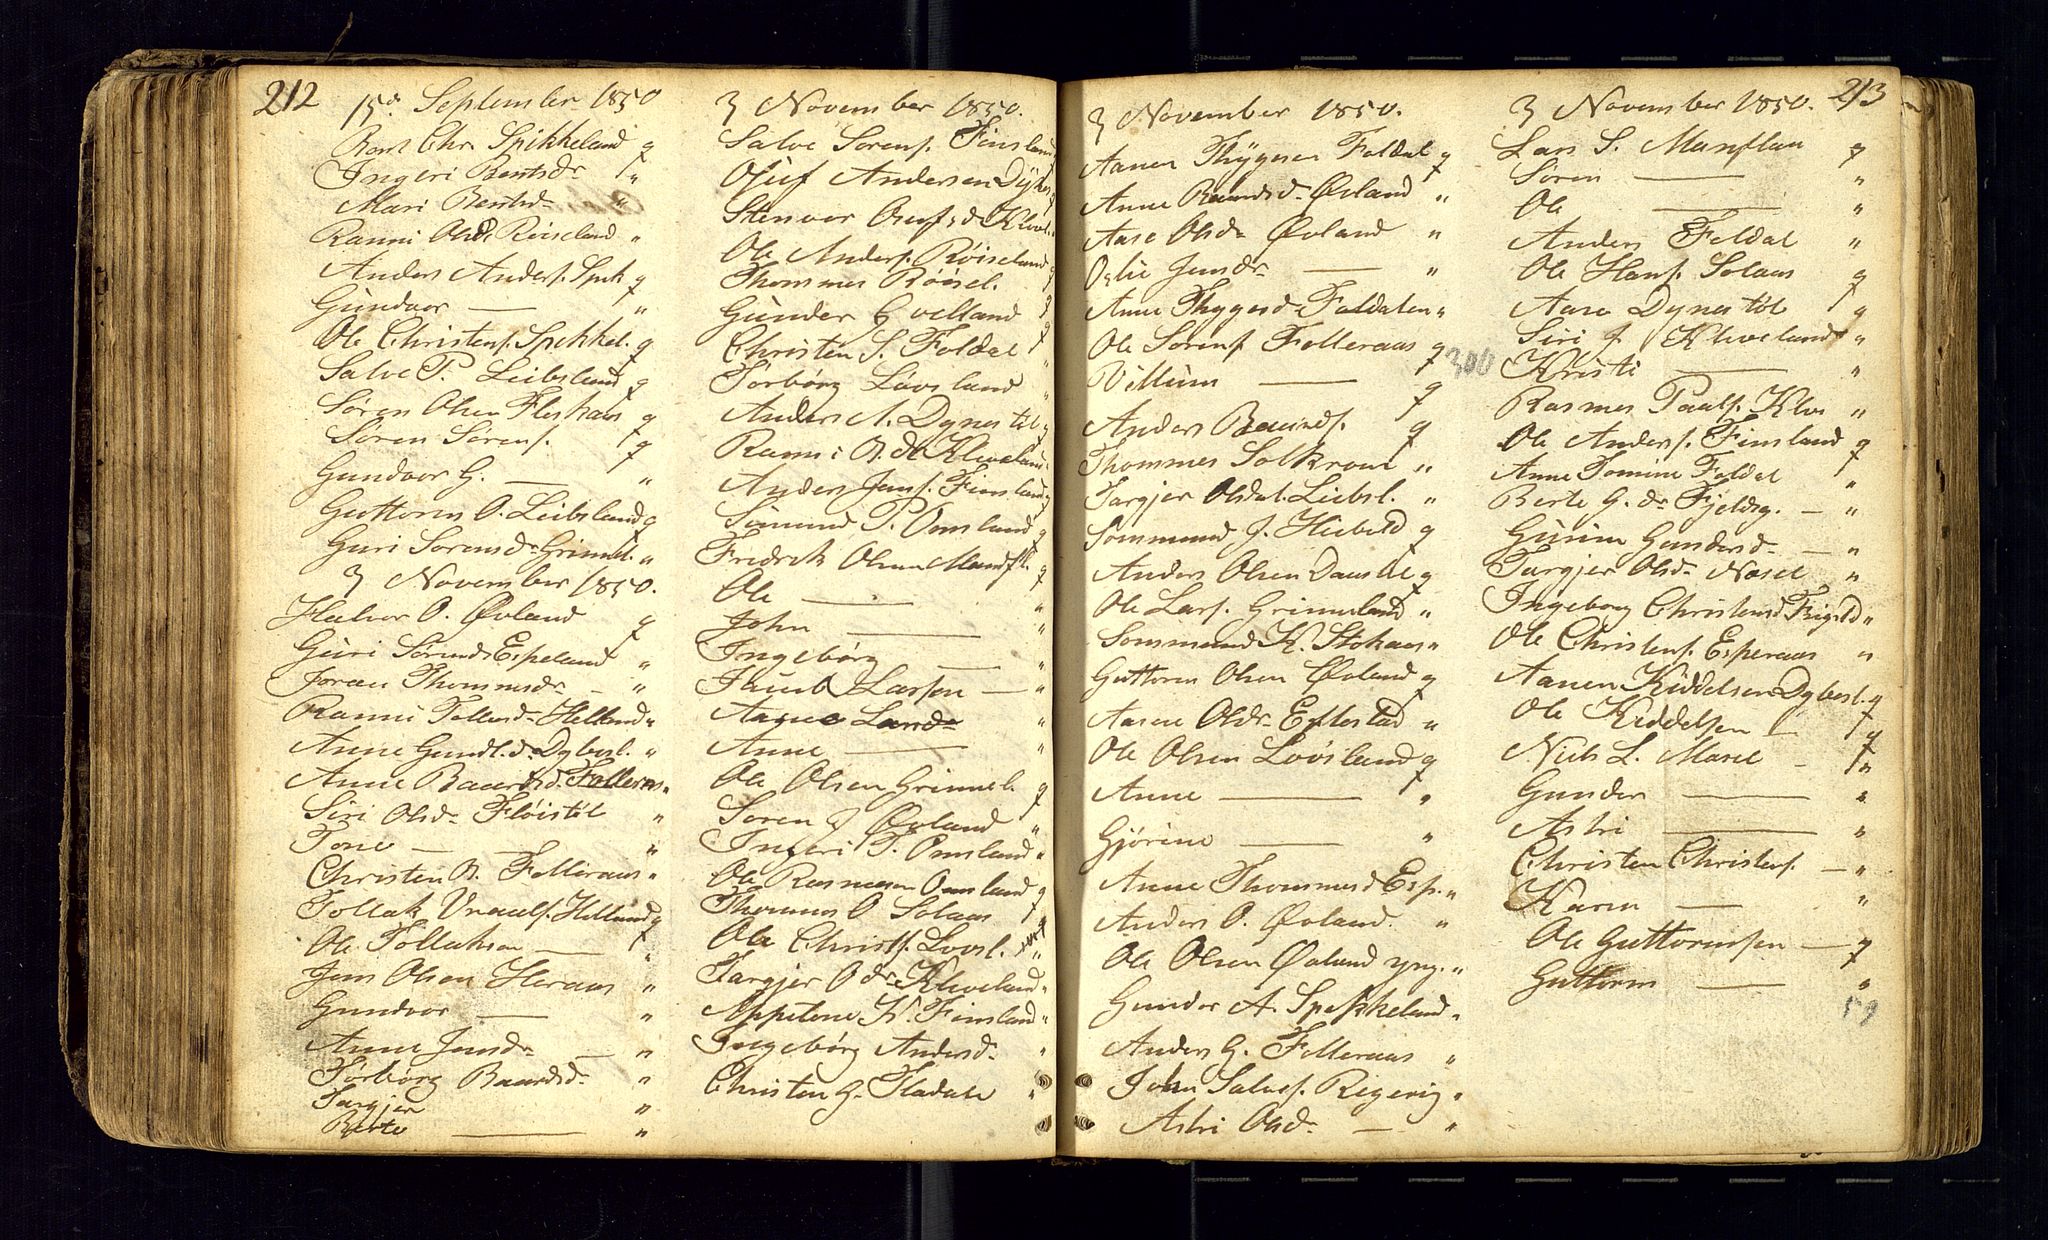 212
15de September 1850
Bent Chr. Spikkeland g
Ingeri Bentsdr "
Mari Bentsd "
Ranni Olsdr Röiseland "
Anders Anders. Spik g
Gundvor — "
Ole Christens. Spikkel. g
Salve P. Leibsland g
Sören Olsen Fleskaas g
Sören Sörens. g
Gundvor G. — "
Guttorm O. Leibsland g
Guri Sorensdr Grimel. "
3 November 1850.
Halvor O. Øvland g
Guri Sörensd Espeland "
Joran Thommesdr — "
Ranni Tollevsd. Helland "
Anne Gundl. d. Dybesl. "
Anne Baardsd. Folleraas "
Siri Olsdr Flöistöl "
Tone — — "
Christen B. Folleraas "
Tollak Vraals. Helland g
Ole Tollaksen — "
Jens Olsen Heraas "
Gundvor — "
Anne Jensdr — "
Torborg Baardsd. "
Targjer "
Berte — "
3 November 1850.
Salve Sorens. Finsland g
Oluf Andersen Dyknes g
Stenvor d. Klevl. "
Ole Anders. Röiseland g
Thommes Röisel. g
Gunder G. velland g
Christen S. Foldal "
Torborg Lövsland "
Anders A. Dynestöl g
Ranni O. dr Kleveland "
Anders Jens. Finsland g
Sömund P. Omsland g
Fredrik Olsen Mansfl. g
Ole — "
John — "
Ingeborg — "
Jacob Larsen — "
Aasne Larsdr "
Anne — "
Ole Olsen Grimel. g
Soren J Øvland "
Ingeri T. Omsland "
Ole Rasmusen Omsland g
Thommes O Solaas g
Ole Christs. Lovsl. "
Targjer O dr Kleveland "
Appelone K. Finsland "
Ingeborg Andersd. "
Christen G. Fladale "
213
3 November 1850.
Aanen Thygesen Foldal g
Anne Baardsd. Øvland "
Aase Olsdr Øvland "
Oslie Jensdr — "
Anne Thygesd Foldalen "
Ole Sorens Folleraas g
Villum — g
Anders Baards. g
Thommes Solkrone "
Targjer Olsdat. Liebsl. "
Sommund J. Hiebeld g
Anders Olsen Daasdel g
Ole Lars. Grimeland "
Sommund K. Stokaas "
Guttorm Olsen Øvland g
Aasne Olsdr Eftestøl "
Ole Olsen Lovsland g
Anne — "
Gjørine — "
Anne Thommesd Esp. "
Anders O. Øvland "
Ole Olsen Øvland yng. "
Gundor A. Spekkeland "
Anders G. Folleraas "
John Salves. Rigevig "
Astri Olsd. — "
3 November 1850.
Lars S. Mansflaa g
Søren — "
Ole — "
Anders Foldal "
Ole Hans. Solaas g
Aase Dynestöl g
Siri J. Kleveland "
300
Kristi — "
Rasmus Paals. Klev "
Ole Anders. Finsland g
Anne Tomine Foldal "
Berte G. dr Fjeldsg. — "
Gurine Gundersd. — "
Targjer Olsdr Nosel "
Ingeborg Christensd Frigstd "
Ole Christens. Esperaas "
Aanen Kiddelsen Dybesl. g
Ole Kiddelsen — g
Niels L. Mosel — "
Gunder — "
Astri — "
Christen Christens. — "
Karen — "
Ole Guttormsen — g
Guttorm — "
59